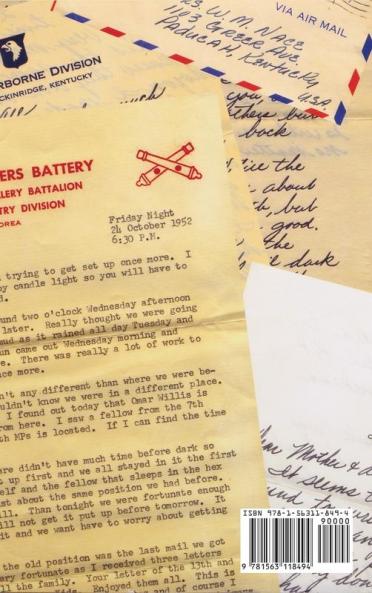 VIA AIR MAIL
W. M. NACE
1123 GREER AVE.
PADUCAH, KENTUCKY
U.S.A.
RBORNE DIVISION
CKINRIDGE, KENTUCKY
you,
but
back
the
about
but
good.
the
dark
ERS BATTERY
LLERY BATTALION
TRY DIVISION
OREA
Friday Night
24 October 1952
6:30 P.M.
trying to get set up once more. I
y candle light so you will have to
d.
und two o'clock Wednesday afternoon
later. Really thought we were going
mud as it rained all day Tuesday and
un came out Wednesday morning and
e. There was really a lot of work to
nce more.
n't any different than where we were be-
uldn't know we were in a different place.
I found out today that Omar Willis is
rom here. I saw a fellow from the 7th
th MPs is located. If I can find the time
are didn't have much time before dark so
t up first and we all stayed in it the first
elf and the fellow that sleeps in the hex
st about the same position we had before.
ll. Than tonight we were fortunate enough
ll not get it put up before tomorrow. It
it and we want to worry about getting
the old position was the last mail we got
ery fortunate as I received three letters
ll the family. Your letter of the 13th and
ds. Enjoyed them all. This is
and of course I
Mother &
It seems
ISBN 978-1-56311-849-4
90000
9 781563 118494